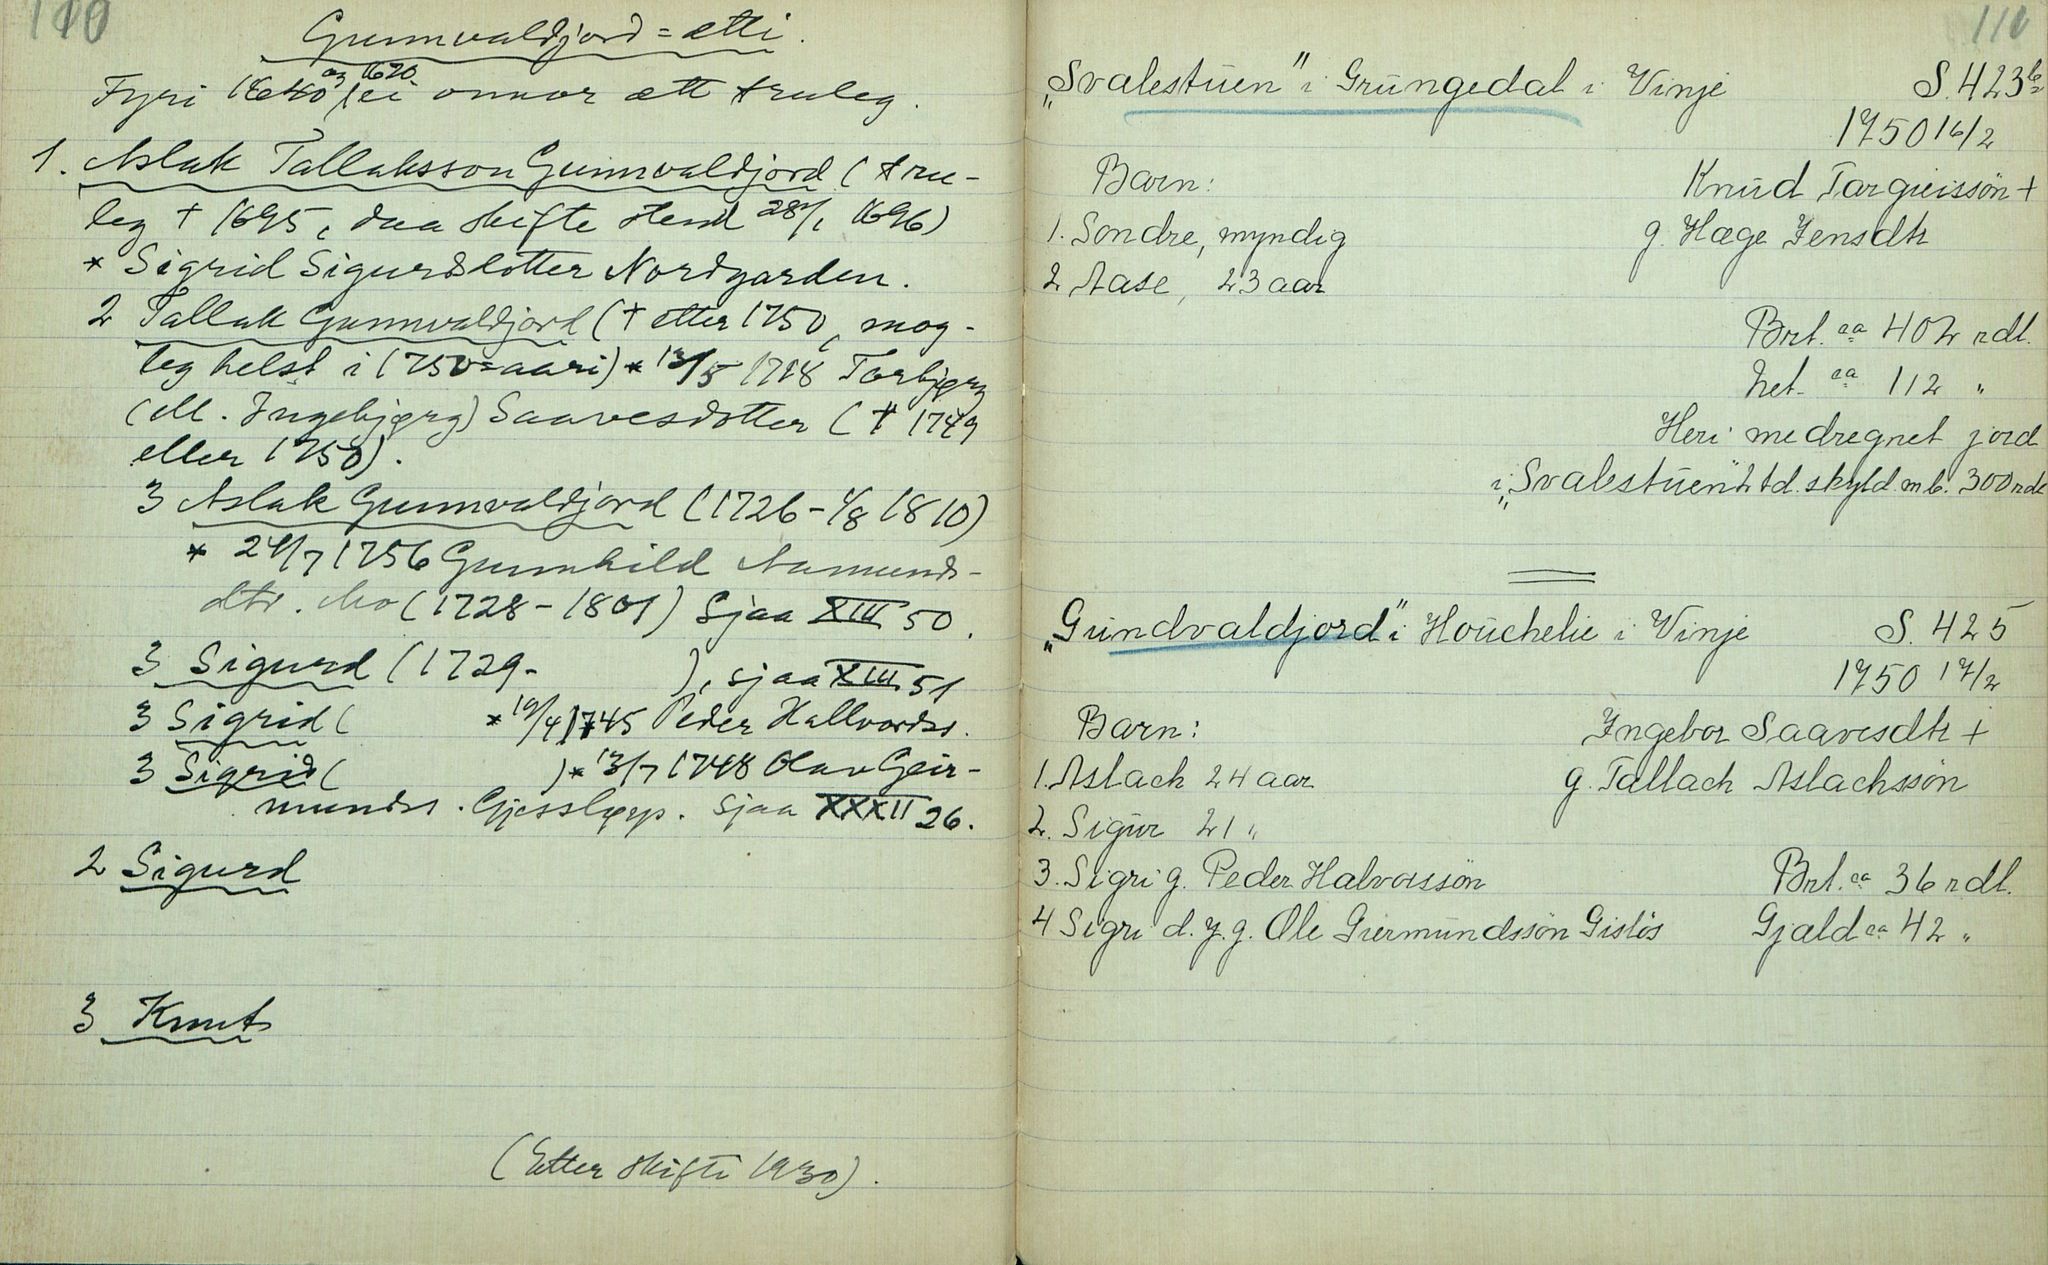 110
Gunnvaldjord = ætti.
og 1620
Fyri 1640 ei onnor ætt truleg.
1. Aslak Tallaksson Gunnvaldjord (tru-
leg † 1695, daa skifte stend 28/1 1696)
* Sigrid Sigurdsdotter Nordgarden.
2 Tallak Gunnvaldjord († etter 1750, mog-
leg helst i 1750=aari) * 13/5 1718 Torbjørg
(el. Ingebjørg) Saavesdotter († 1749
eller 1750).
3 Aslak Gunnvaldjord (1726 - 4/8 1810)
* 24/7 1756 Gunnhild Aamunds-
dtr. Mo (1728 - 1801) Sjaa XIII 50.
3 Sigurd (1729- ), sjaa XIII 51
3 Sigrid ( * 19/4 1745 Peder Hallvordss.
3 Sigrid ( ) * 13/7 1748 Olav Geir-
mundss. Gjessløyp. Sjaa XXXII 26.
2 Sigurd
3 Knut
(Etter skifti 1930).
110
„Svalestuen" i Grungedal i Vinje S. 423b
1750 16/2
Barn: Knud Targieissön +
1. Sondre, myndig g. Hæge Jensdtr
2 Aase, 23 aar
Brt. ca 402 rdl.
Net. ca 112 "
Heri medregnet jord
i „Svalestuen" 2 td. skyld m b. 300 rdl
„Gundvaldjord" i Houchelie i Vinje S. 425
1750 17/2
Barn: Ingebor Saavesdtr +
1. Aslach 24 aar g. Tallach Aslachssön
2. Sigur 21 "
3. Sigri g. Peder Halvorssön Brt. ca 36 rdl.
4 Sigri d. y. g. Ole Giermundssön Gislös Gjæld ca 42 "